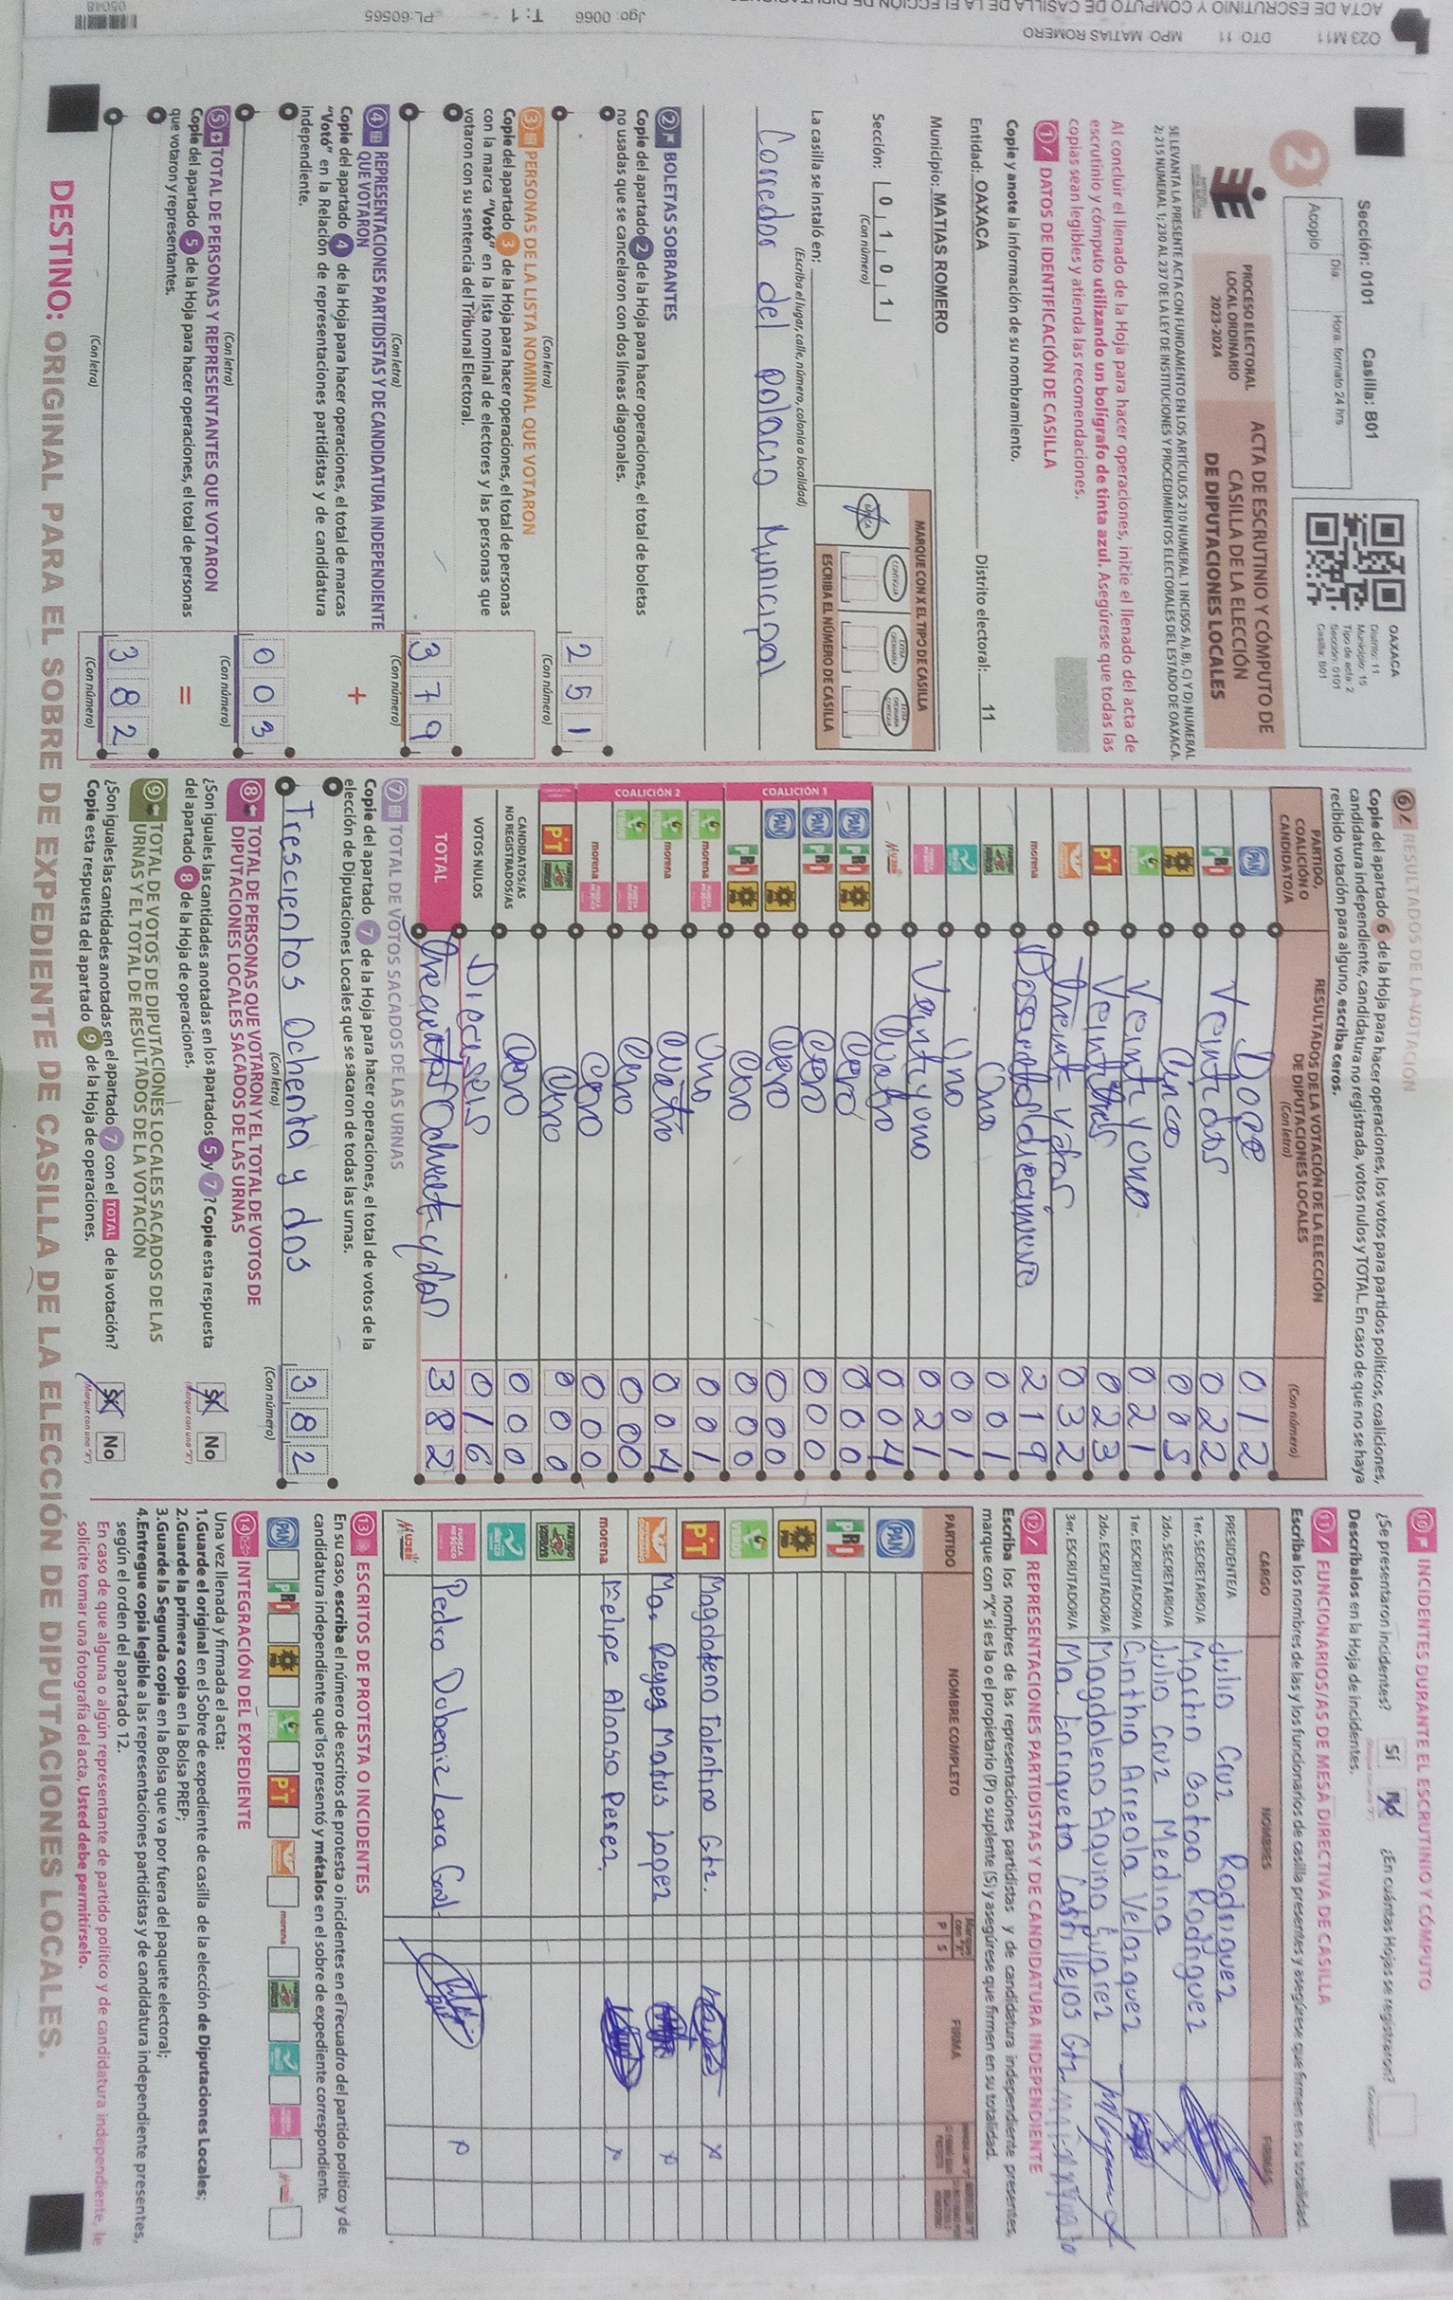 O23 M11 DTO 11 MPO MATIAS ROMERO Jgo: 0066 T: 1 PL:60565
05048
Sección: 0101 Casilla: B01
2
Acopio
Día:
Hora: formato 24 hrs
OAXACA
Distrito: 11
Municipio: 15
Tipo de acta: 2
Sección: 0101
Casilla: B01
PROCESO ELECTORAL
LOCAL ORDINARIO
2023-2024
ACTA DE ESCRUTINIO Y CÓMPUTO DE
CASILLA DE LA ELECCIÓN
DE DIPUTACIONES LOCALES
SE LEVANTA LA PRESENTE ACTA CON FUNDAMENTO EN LOS ARTÍCULOS 210 NUMERAL 1 INCISOS A), B), C) Y D) NUMERAL
2; 215 NUMERAL 1; 230 AL 237 DE LA LEY DE INSTITUCIONES Y PROCEDIMIENTOS ELECTORALES DEL ESTADO DE OAXACA.
Al concluir el llenado de la Hoja para hacer operaciones, inicie el llenado del acta de
escrutinio y cómputo utilizando un bolígrafo de tinta azul. Asegúrese que todas las
copias sean legibles y atienda las recomendaciones.
1 DATOS DE IDENTIFICACIÓN DE CASILLA
Copie y anote la información de su nombramiento.
Entidad: OAXACA Distrito electoral: 11
Municipio: MATIAS ROMERO
MARQUE CON X EL TIPO DE CASILLA
ESCRIBA EL NÚMERO DE CASILLA
Sección: 0 1 0 1
(Con número)
La casilla se instaló en:
(Escriba el lugar, calle, número, colonia o localidad)
Corredor del palacio Municipal
2 BOLETAS SOBRANTES
Copie del apartado 2 de la Hoja para hacer operaciones, el total de boletas
no usadas que se cancelaron con dos líneas diagonales.
2 5 1
(Con letra) (Con número)
3 PERSONAS DE LA LISTA NOMINAL QUE VOTARON
Copie del apartado 3 de la Hoja para hacer operaciones, el total de personas
con la marca "Votó" en la lista nominal de electores y las personas que
votaron con su sentencia del Tribunal Electoral.
3 7 9
(Con letra) (Con número)
4 REPRESENTACIONES PARTIDISTAS Y DE CANDIDATURA INDEPENDIENTE
QUE VOTARON
+
Copie del apartado 4 de la Hoja para hacer operaciones, el total de marcas
"Votó" en la Relación de representaciones partidistas y de candidatura
independiente.
0 0 3
(Con letra) (Con número)
5 TOTAL DE PERSONAS Y REPRESENTANTES QUE VOTARON
=
Copie del apartado 5 de la Hoja para hacer operaciones, el total de personas
que votaron y representantes.
3 8 2
(Con letra) (Con número)
6 RESULTADOS DE LA VOTACIÓN
Copie del apartado 6 de la Hoja para hacer operaciones, los votos para partidos políticos, coaliciones,
candidatura independiente, candidatura no registrada, votos nulos y TOTAL. En caso de que no se haya
recibido votación para alguno, escriba ceros.
PARTIDO,
COALICIÓN O
CANDIDATO/A
RESULTADOS DE LA VOTACIÓN DE LA ELECCIÓN
DE DIPUTACIONES LOCALES
(Con letra)
(Con número)
PAN Doce 0 1 2
PRI Veintidos 0 2 2
Cinco 0 0 5
Veinti y uno 0 2 1
PT Veintitres 0 2 3
Treinta y dos 0 3 2
morena Doscientos diecinueve 2 1 9
Uno 0 0 1
Uno 0 0 1
Veinti y uno 0 2 1
Cuatro 0 0 4
COALICIÓN 1
PAN PRI Cero 0 0 0
PAN PRI Cero 0 0 0
PAN Cero 0 0 0
PRI Cero 0 0 0
COALICIÓN 2
morena Uno 0 0 1
morena Cuatro 0 0 4
Cero 0 0 0
morena Cero 0 0 0
PT Cero 0 0 0
CANDIDATOS/AS
NO REGISTRADOS/AS Cero 0 0 0
VOTOS NULOS Dieciseis 0 1 6
TOTAL Trecientos Ochenta y dos 3 8 2
7 TOTAL DE VOTOS SACADOS DE LAS URNAS
Copie del apartado 7 de la Hoja para hacer operaciones, el total de votos de la
elección de Diputaciones Locales que se sacaron de todas las urnas.
Trescientos Ochenta y dos 3 8 2
(Con letra) (Con número)
8 TOTAL DE PERSONAS QUE VOTARON Y EL TOTAL DE VOTOS DE
DIPUTACIONES LOCALES SACADOS DE LAS URNAS
¿Son iguales las cantidades anotadas en los apartados 5 y 7? Copie esta respuesta
del apartado 8 de la Hoja de operaciones.
Sí No
(Marque con una "X")
9 TOTAL DE VOTOS DE DIPUTACIONES LOCALES SACADOS DE LAS
URNAS Y EL TOTAL DE RESULTADOS DE LA VOTACIÓN
¿Son iguales las cantidades anotadas en el apartado 7 con el TOTAL de la votación?
Copie esta respuesta del apartado 9 de la Hoja de operaciones.
Sí No
(Marque con una "X")
10 INCIDENTES DURANTE EL ESCRUTINIO Y CÓMPUTO
¿Se presentaron incidentes? Sí No ¿En cuántas Hojas se registraron?
Descríbalos en la Hoja de incidentes.
11 FUNCIONARIOS/AS DE MESA DIRECTIVA DE CASILLA
Escriba los nombres de las y los funcionarios de casilla presentes y asegúrese que firmen en su totalidad.
CARGO NOMBRES FIRMAS
PRESIDENTE/A Julio Cruz Rodriguez
1er. SECRETARIO/A Martin Rodriguez
2do. SECRETARIO/A Julio Cruz Medina
1er. ESCRUTADOR/A Cinthia Arreola Velazquez
2do. ESCRUTADOR/A Magdalena Aquino Suarez
3er. ESCRUTADOR/A Ma. Enriqueta Castillejos Gtz
12 REPRESENTACIONES PARTIDISTAS Y DE CANDIDATURA INDEPENDIENTE
Escriba los nombres de las representaciones partidistas y de candidatura independiente presentes,
marque con "X" si es la o el propietario (P) o suplente (S) y asegúrese que firmen en su totalidad.
PARTIDO NOMBRE COMPLETO P S FIRMA
PAN
PRI
VERDE
PT Magdalena Tolentino Gtz. x
Ma. Reyes Matus Lopez x
morena Felipe Alonso x
Pedro Lara P
13 ESCRITOS DE PROTESTA O INCIDENTES
En su caso, escriba el número de escritos de protesta o incidentes en el recuadro del partido político y de
candidatura independiente que los presentó y métalos en el sobre de expediente correspondiente.
PAN PRI PT morena
14 INTEGRACIÓN DEL EXPEDIENTE
Una vez llenada y firmada el acta:
1.Guarde el original en el Sobre de expediente de casilla de la elección de Diputaciones Locales;
2.Guarde la primera copia en la Bolsa PREP;
3.Guarde la Segunda copia en la Bolsa que va por fuera del paquete electoral;
4.Entregue copia legible a las representaciones partidistas y de candidatura independiente presentes,
según el orden del apartado 12.
En caso de que alguna o algún representante de partido político y de candidatura independiente, le
solicite tomar una fotografía del acta, Usted debe permitírselo.
DESTINO: ORIGINAL PARA EL SOBRE DE EXPEDIENTE DE CASILLA DE LA ELECCIÓN DE DIPUTACIONES LOCALES.